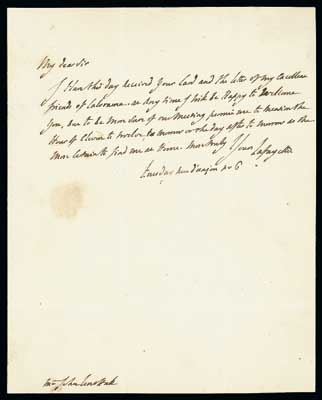 My dear Sir
I Have this day received Your Card and the letter of my Excellent
friends of Calorama. at any time I wish be Happy to Wellcome
You, but to be More Sure of our Meeting permit me to mention the
Hour of Eleven to twelve to morrow or the day after to morrow as the
More Certain to find me at Home. Most truly Yours Lafayette
Tuesday rue d'anjou no 6
Mr John